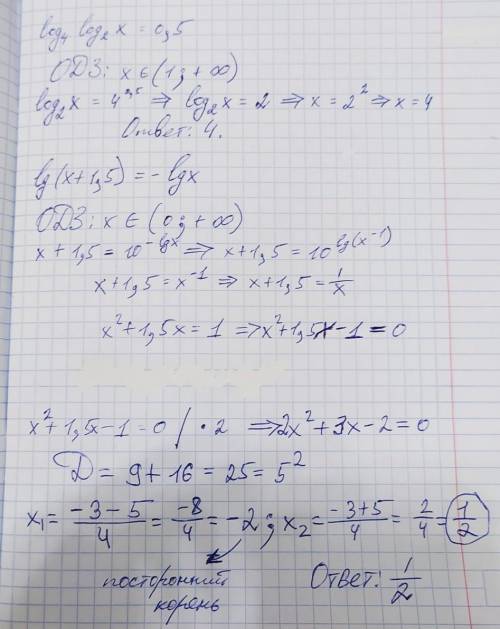 log₄ log₂ x = 0,5
ОДЗ: x ∈ (1; +∞)
log₂x = 4^0,5 ⇒ log₂x = 2 ⇒ x = 2² ⇒ x = 4
Ответ: 4.
lg(x+1,5) = -lgx
ОДЗ: x ∈ (0; +∞)
x + 1,5 = 10^(-lgx) ⇒ x + 1,5 = 10^(lg(x^-1))
x + 1,5 = x^-1 ⇒ x + 1,5 = 1/x
x² + 1,5x = 1 ⇒ x² + 1,5x - 1 = 0
x² + 1,5x - 1 = 0 / · 2 ⇒ 2x² + 3x - 2 = 0
D = 9 + 16 = 25 = 5²
x₁ = (-3-5)/4 = -8/4 = -2; x₂ = (-3+5)/4 = 2/4 = 1/2
посторонний корень
Ответ: 1/2